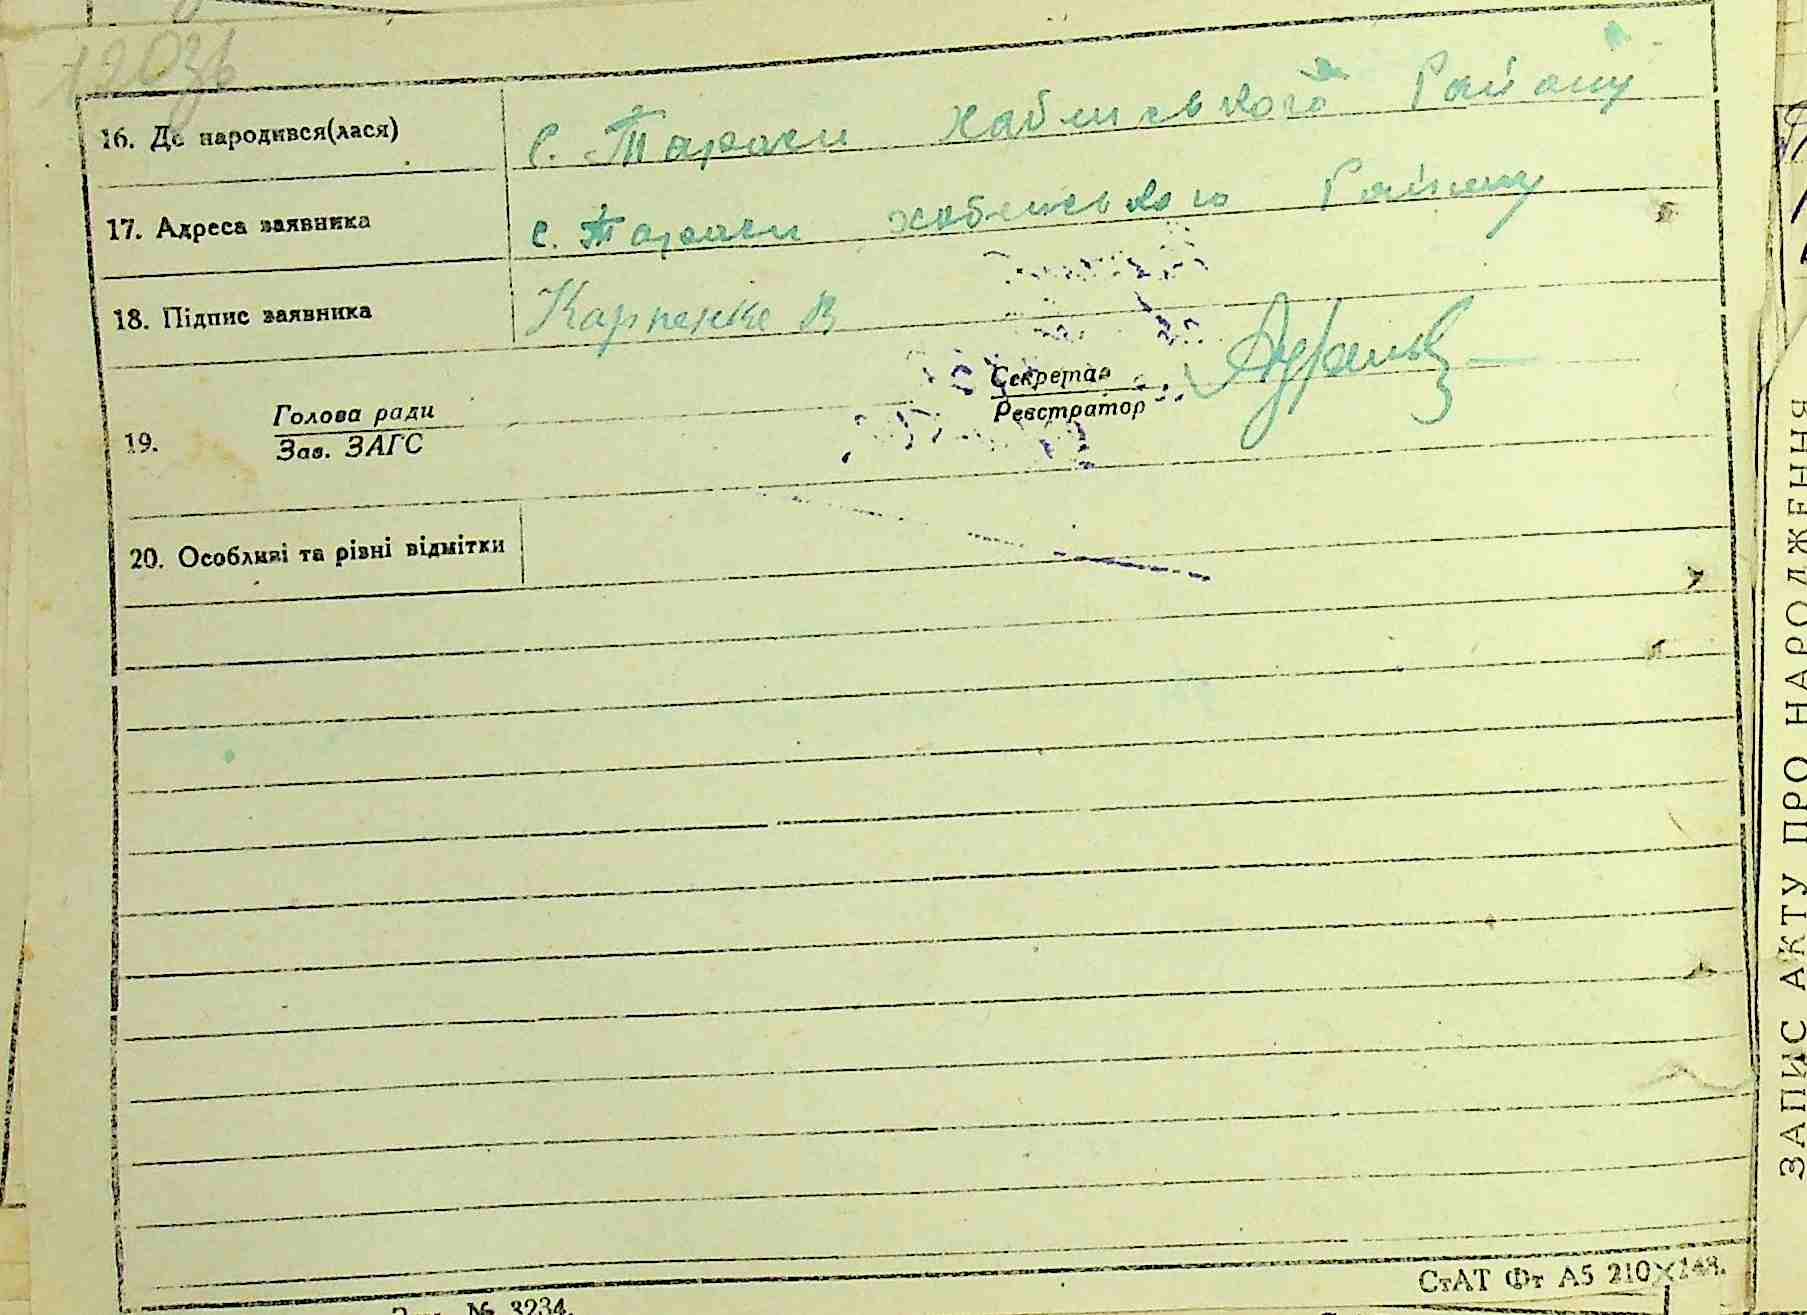 120зв
16. Де народився(лася) с. Тараси Хабенського Району
17. Адреса заявника с. Тараси хабенського Району
18. Підпис заявника Карпенко В
19. Голова ради Секретар
Зав. ЗАГС Реєстратор
20. Особливі та різні відмітки
СтАТ Фт А5 210×148.
№ 3234.
ЗАПИС АКТУ ПРО НАРОДЖЕННЯ